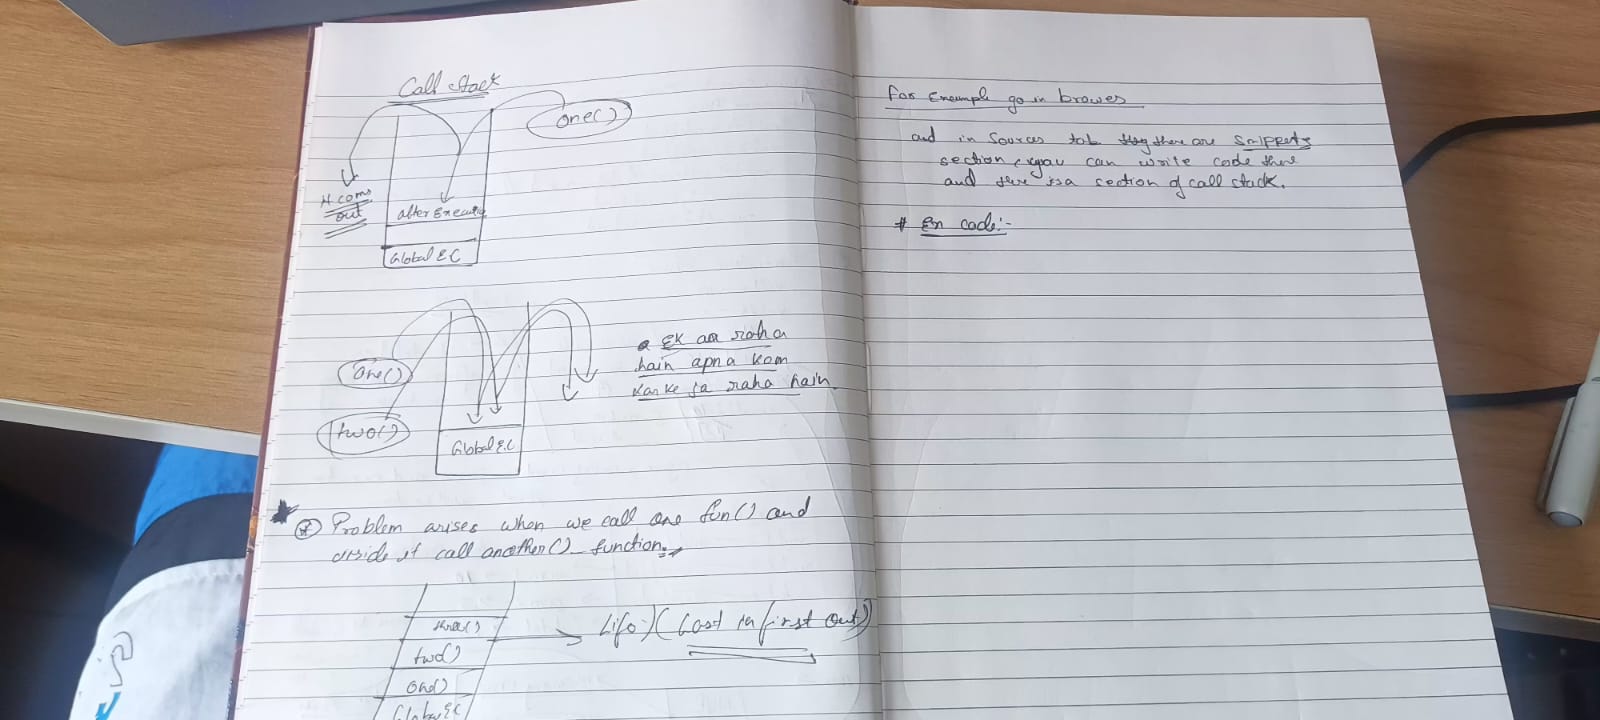 Call stack
one()
It coms
out
after Execution
Global EC
one()
two()
Global E.C
EK aa raha
hain apna kam
karke ja raha hain.
Problem arises when we call one fun() and
inside it call another() function.
three()
two()
one()
Global EC
Lifo) (Last in first out)
For Example go in browes
and in Sources tab there are Snippets
section, you can write code there
and there is a section of call stack.
# En code:-